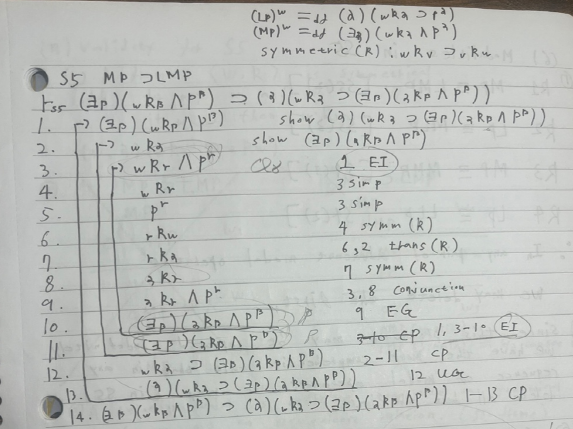 (LP)ʷ =df (z)(wRz ⊃ pᶻ)
(MP)ʷ =df (∃z)(wRz ∧ pᶻ)
symmetric (R) : wRv ⊃ vRw
S5 MP ⊃ LMP
⊢S5 (∃p)(wRp ∧ pᵖ) ⊃ (z)(wRz ⊃ (∃p)(zRp ∧ pᵖ))
1. → (∃p)(wRp ∧ pᵖ) show (z)(wRz ⊃ (∃p)(zRp ∧ pᵖ))
2. → wRz show (∃p)(zRp ∧ pᵖ)
3. → wRr ∧ pʳ 1 EI
4. wRr 3 simp
5. pʳ 3 simp
6. rRw 4 symm (R)
7. rRz 6,2 trans (R)
8. zRr 7 symm (R)
9. zRr ∧ pʳ 3, 8 conjunction
10. (∃p)(zRp ∧ pᵖ) 9 EG
11. (∃p)(zRp ∧ pᵖ) 3-10 CP 1, 3-10 EI
12. wRz ⊃ (∃p)(zRp ∧ pᵖ) 2-11 CP
13. (z)(wRz ⊃ (∃p)(zRp ∧ pᵖ)) 12 UG
14. (∃p)(wRp ∧ pᵖ) ⊃ (z)(wRz ⊃ (∃p)(zRp ∧ pᵖ)) 1-13 CP